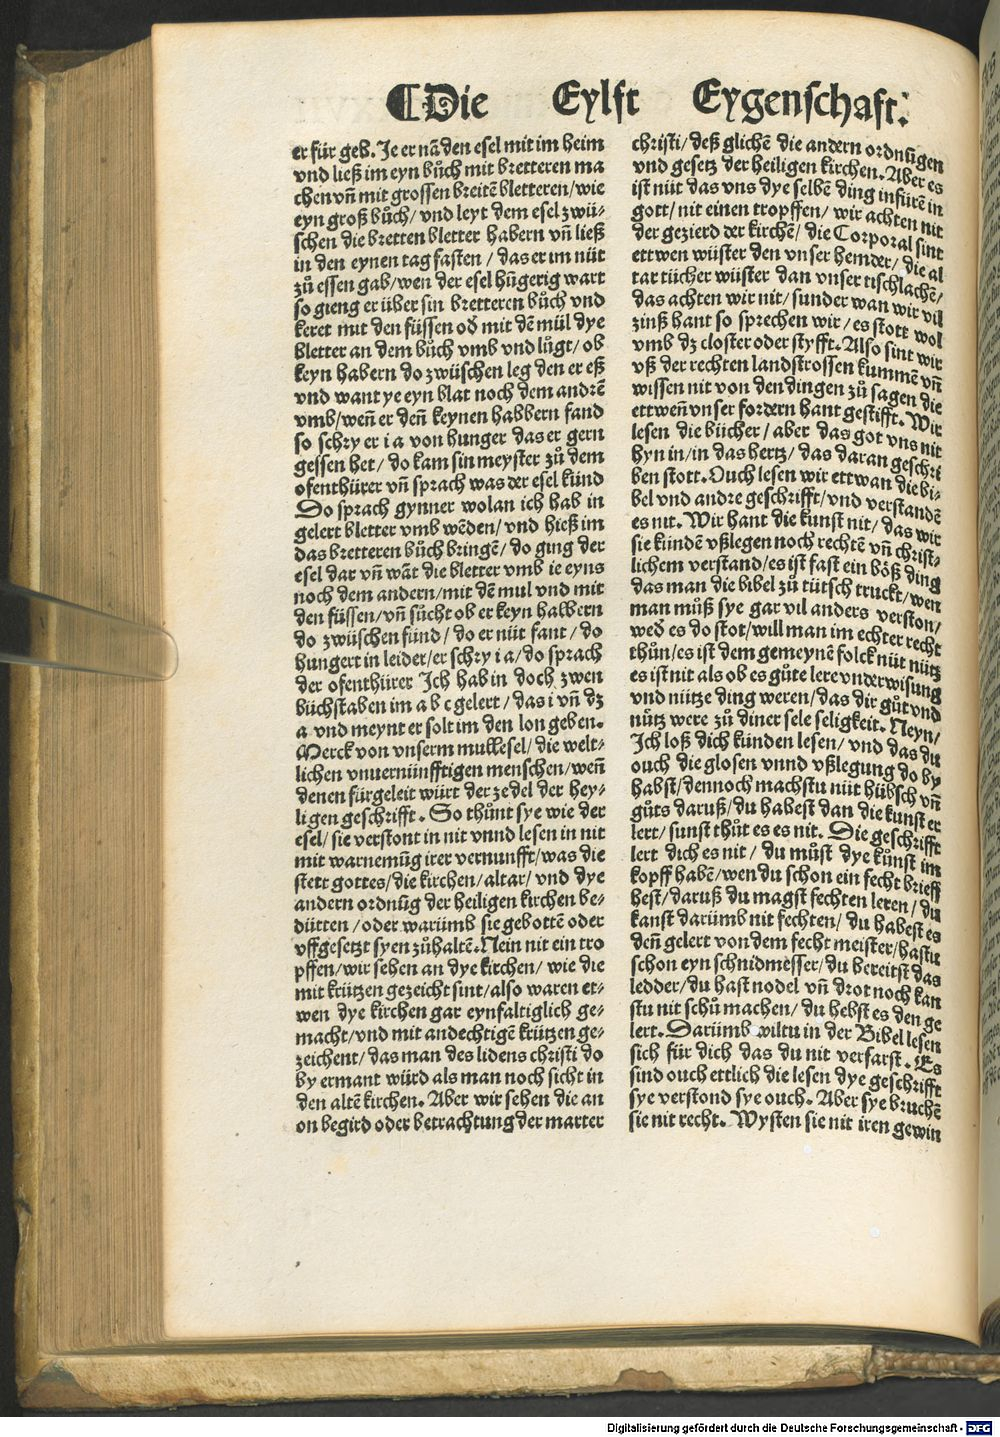 ¶Die Eylft Eygenschaft.
er für geb. Je er nā den esel mit im heim
vnd ließ im eyn bůch mit bretteren ma
chen vñ mit grossen breitē bletteren/wie
eyn groß bůch/ vnd leyt dem esel zwü⸗
schen die bretten bletter habern vñ ließ
in den eynen tag fasten / das er im nüt
zů essen gab/wen der esel hūgerig wart
so gieng er über sin bretteren bůch vnd
keret mit den füssen od̓ mit dē mül dye
bletter an dem bůch vmb vnd lůgt/ ob
keyn habern do zwüschen leg den er eß
vnd want ye eyn blat noch dem andrē
vmb/weñ er deñ keynen habbern fand
so schry er i a von hunger das er gern
gessen het/ do kam sin meyster zů dem
ofenthürer vñ sprach was der esel künd
Do sprach gynner wolan ich hab in
gelert bletter vmb wēden/ vnd hieß im
das bretteren bůch bringē/ do ging der
esel dar vñ wāt die bletter vmb ie eyns
noch dem andern/mit dē mul vnd mit
den füssen/vñ sůcht ob er keyn habbern
do zwüschen fünd/ do er nüt fant / do
hungert in leider/er schry i a/do sprach
der ofenthürer Ich hab in doch zwen
büchstaben im a b c gelert/ das i vñ dz
a vnd meynt er solt im den lon geben.
Merck von vnserm mullesel/ die welt⸗
lichen vnuernünfftigen menschen/weñ
denen fürgeleit würt der zedel der hey⸗
ligen geschrifft. So thůnt sye wie der
esel/ sie verstont in nit vnnd lesen in nit
mit warnemūg irer vernunfft/was die
stett gottes/die kirchen/altar/ vnd dye
andern ordnūg der heiligen kirchen be⸗
dütten /oder warümb sie gebottē oder
vffgesetzt syen zůhaltē. Nein nit ein tro
pffen/wir sehen an dye kirchen/ wie die
mit krützen gezeicht sint/also waren et⸗
wen dye kirchen gar eynfaltiglich ge⸗
macht/vnd mit andechtigē krützen ge⸗
zeichent/das man des lidens christi do
by ermant würd als man noch sicht in
den altē kirchen. Aber wir sehen die an
on begird oder betrachtung der marter
christi/ deß glichē die andern ordnūgen
vnd gesetz der heiligen kirchen. Aber es
ist nüt das vns dye selbē ding infürē in
gott/ nit einen tropffen/ wir achten nit
der gezierd der kirchē/ die Corporal sint
ettwen wüster den vnser hemder/ die al
tar tücher wüster dan vnser tischlachē/
das achten wir nit/ sunder wan wir vil
zinß hant so sprechen wir/ es stott wol
vmb dz closter oder styfft. Also sint wir
vß der rechten landstrossen kummē vñ
wissen nit von den dingen zů sagen die
ettweñ vnser fordern hant gestifft. Wir
lesen die bücher/ aber das got vns nit
hyn in/in das hertz/ das daran geschri
ben stott. Ouch lesen wir ettwan die bi⸗
bel vnd andre geschrifft/vnd verstandē
es nit. Wir hant die kunst nit/ das wir
sie kündē vßlegen noch rechtē vñ christ⸗
lichem verstand/es ist fast ein böß ding
das man die bibel zů tütsch truckt/wen
man můß sye gar vil anders verston/
wed̓ es do stot/will man im echter recht
thůn/es ist dem gemeynē folck nüt nütz
es ist nit als ob es gůte lere vnderwisung
vnd nütze ding weren/das dir gůt vnd
nütz were zů diner sele seligkeit. Neyn/
Ich loß dich künden lesen/ vnd das du
ouch die glosen vnnd vßlegung do by
habst/dennoch machstu nüt hübsch vñ
gůts daruß/du habest dan die kunst er
lert/ sunst thůt es es nit. Die geschrifft
lert dich es nit / du můst dye kůnst im
kopff habē/wen du schon ein fecht brieff
hest/daruß du magst fechten leren / du
kanst darümb nit fechten/ du habest es
deñ gelert von dem fecht meister/hastu
schon eyn schnidmesser/du bereitst das
ledder/du hast nodel vñ drot noch kan
stu nit schů machen/ du hebst es den ge
lert. Darümb wiltu in der Bibel lesen
sich für dich das du nit verfarst. Es
sind ouch ettlich die lesen dye geschrifft
sye verstond sye ouch. Aber sye bruchē
sie nit recht. Wysten sie nit iren gewin
Digitalisierung gefördert durch die Deutsche Forschungsgemeinschaft - DFG